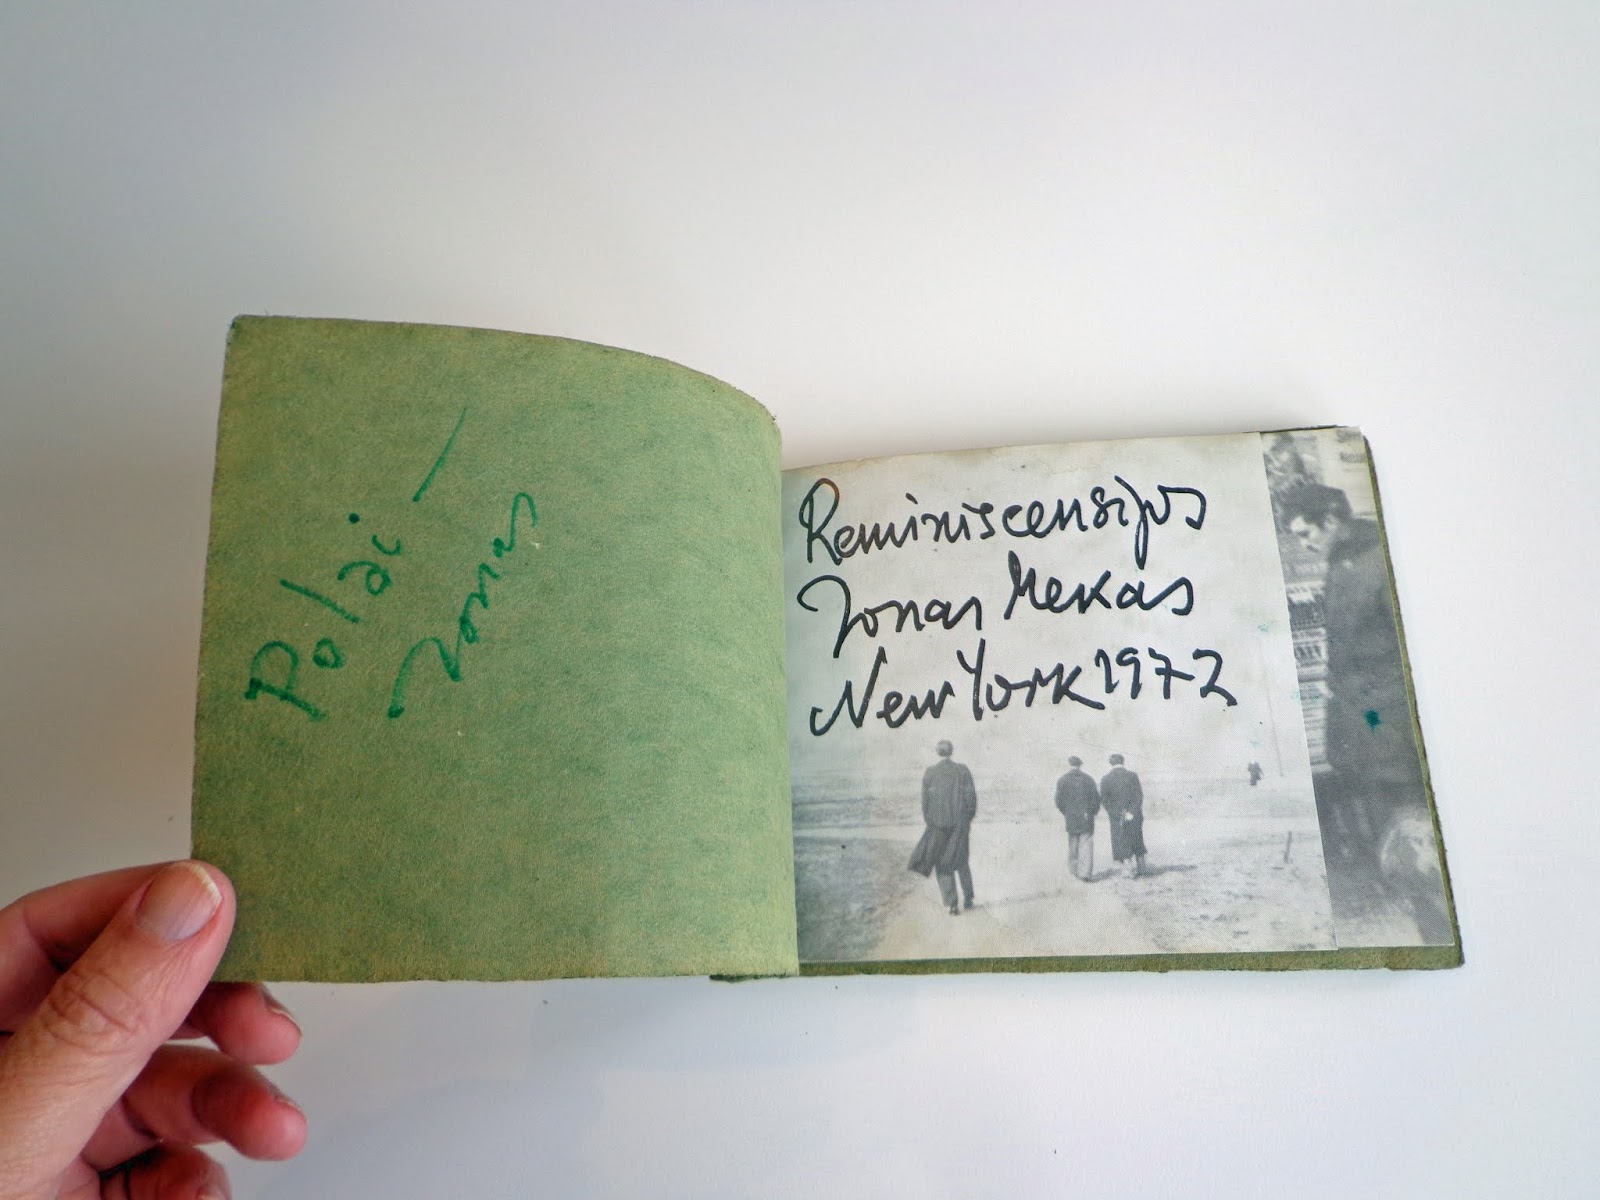 Poldi –
Jonas
Reminiscensijos
Jonas Mekas
New York 1972